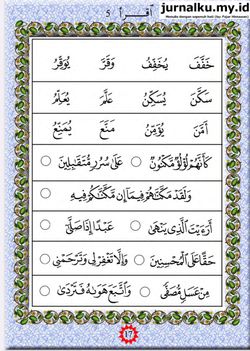 jurnalku.my.id
أقرأ 5
خَفَّفَ يُخَفِّفُ وَقَّرَ يُوَقِّرُ
سَكَّنَ يُسَكِّنُ عَلَّمَ يُعَلِّمُ
أَمَّنَ يُؤَمِّنُ مَنَّعَ يُمَنِّعُ
كَأَنَّهُمْ لُؤْلُؤٌ مَكْنُونٌ ○ عَلَى سُرُرٍ مُتَقَابِلِينَ
وَلَقَدْ مَكَّنَّاهُمْ فِيمَا إِنْ مَكَّنَّاكُمْ فِيهِ
أَرَءَيْتَ الَّذِي يَنْهَى ○ عَبْدًا إِذَا صَلَّى
حَقًّا عَلَى الْمُحْسِنِينَ ○ وَإِلَّا تَغْفِرْ لِي وَتَرْحَمْنِي
مِنْ عَسَلٍ مُصَفًّى ○ وَاتَّبَعَ هَوَاهُ فَتَرْدَى ○
17